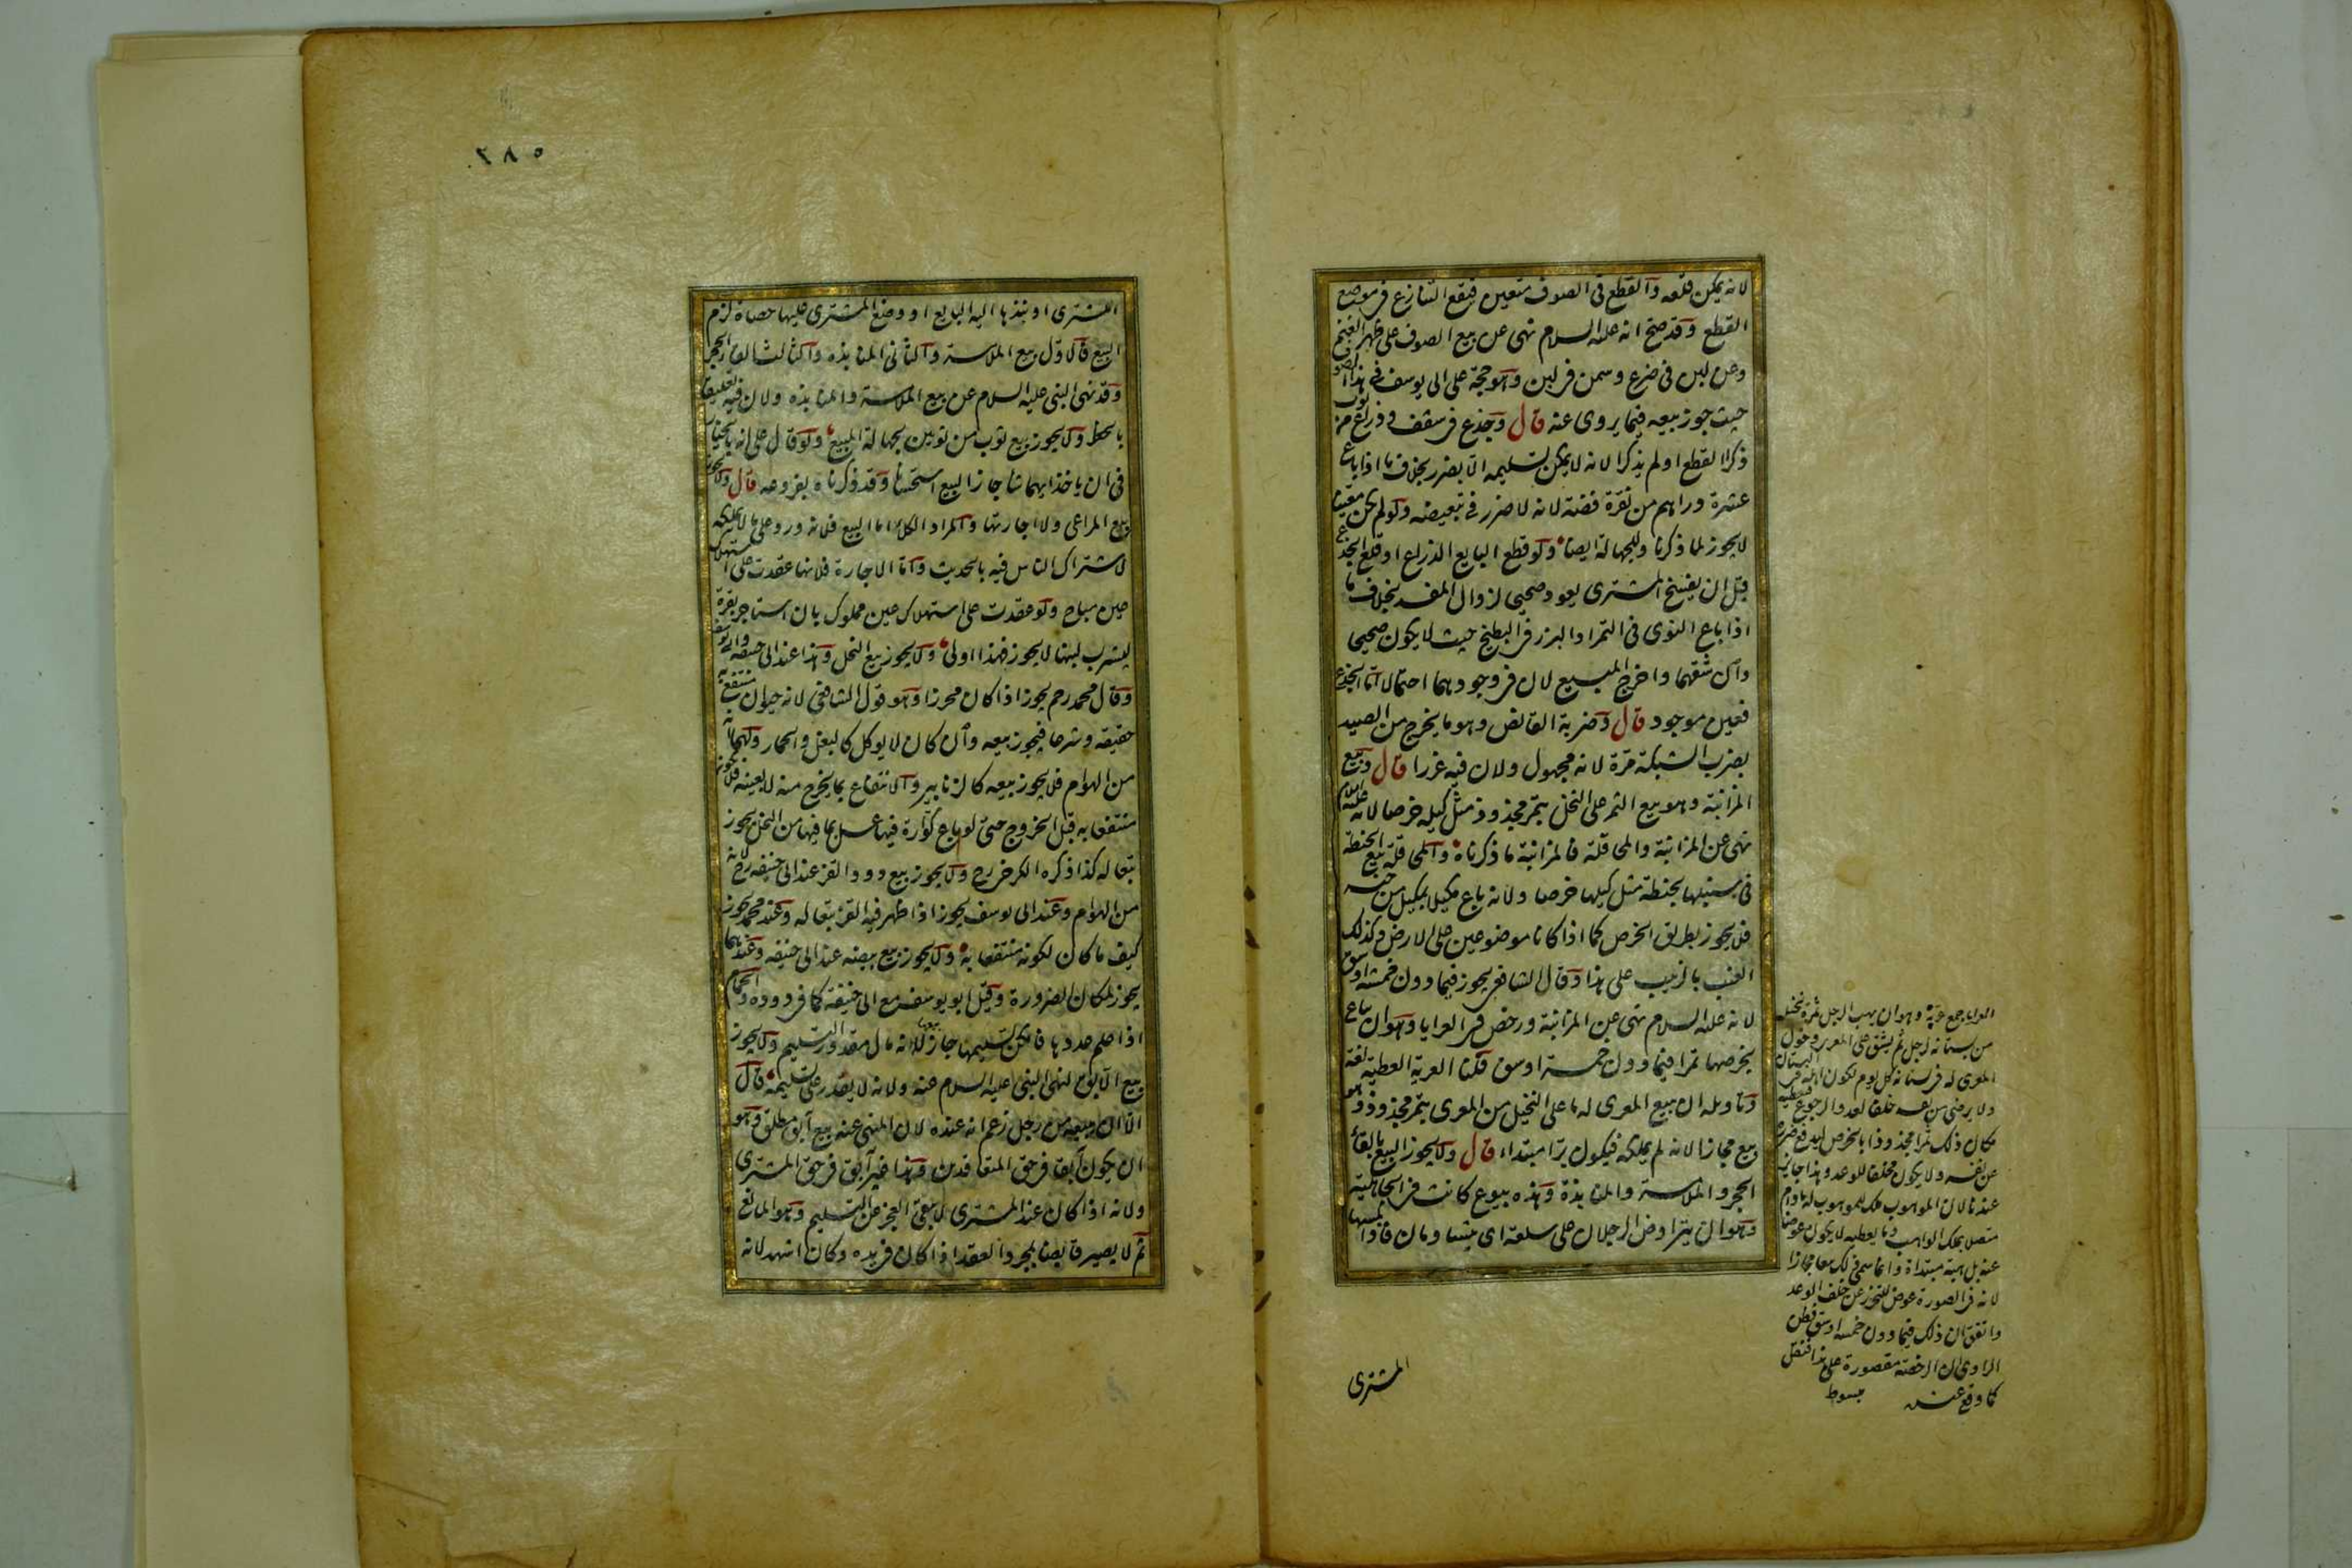 لانه يمكن قلعه والقطع فى الصوف متعين فيقع التنازع فى موضع
القطع وقد صح انه عليه السلام نهى عن بيع الصوف على ظهر الغنم
وعن لبن فى ضرع وسمن فى لبن وهو حجة على ابى يوسف فى هذا الصوف
حيث جوز بيعه فيما يروى عنه قال وجذع فى سقف وذراع من ثوب
ذكرا القطع او لم يذكرا لانه لا يمكن تسليمه الا بضرر بخلاف ما اذا باع
عشرة دراهم من نقرة فضة لانه لا ضرر فى تبعيضه ولو لم يكن معينا
لا يجوز لما ذكرنا وللجهالة ايضا ولو قطع البايع الذراع او قلع الجذع
قبل ان يفسخ المشترى يعود صحيحا لزوال المفسد بخلاف ما
اذا باع النوى فى التمر او البزر فى البطيخ حيث لا يكون صحيحا
وان شقهما واخرج المبيع لان فى وجودهما احتمالا اما الجذع
فعين موجود قال وضربة القانص وهو ما يخرج من الصيد
بضرب الشبكة مرة لانه مجهول ولان فيه غررا قال وبيع
المزابنة وهو بيع الثمر على النخل بتمر مجذوذ مثل كيله خرصا لانه عليه السلام
نهى عن المزابنة والمحاقلة فالمزابنة ما ذكرناه والمحاقلة بيع الحنطة
فى سنبلها بحنطة مثل كيلها خرصا ولانه باع مكيلا بمكيل من جنسه
فلا يجوز بطريق الخرص كما اذا كانا موضوعين على الارض وكذلك
العنب بالزبيب على هذا وقال الشافعى يجوز فيما دون خمسة اوسق
لانه عليه السلام نهى عن المزابنة ورخص فى العرايا وهو ان يباع
بخرصها تمرا فيما دون خمسة اوسق قلنا العرية العطية لغة
وتاويله ان يبيع المعرى له ما على النخيل من المعرى بتمر مجذوذ وهو
بيع مجازا لانه لم يملكه فيكون برا مبتداء قال ولا يجوز البيع بالقاء
الحجر والملامسة والمنابذة وهذه بيوع كانت فى الجاهلية
وهو ان يتراوض الرجلان على سلعة اى يتساومان فاذا لمسها
المشترى
العرايا جمع عرية وهو ان يهب الرجل ثمرة نخل
من بستانه لرجل ثم يشق على المعرى دخول
المعرى له فى بستانه كل يوم لكون اهله فى البستان
ولا يرضى من نفسه خلف الوعد والرجوع فيعطيه
مكان ذلك تمرا مجذوذا بالخرص ليدفع ضرره
عن نفسه ولا يكون مخلفا للوعد وهذا جايز
عندنا لان الموهوب ملك للموهوب له ما دام
متصلا بملك الواهب وما يعطيه لا يكون عوضا
عنه بل هبة مبتداة وانما سمى ذلك بيعا مجازا
لانه فى الصورة عوض للتحرز عن خلف الوعد
واتفق ان ذلك فيما دون خمسة اوسق فظن
الراوى ان الرخصة مقصورة على هذا فنقل
كما وقع عنده مبسوط
٢٨٥
المشترى او نبذها اليه البايع او وضع المشترى عليها حصاة لزم
البيع فالاول بيع الملامسة والثانى المنابذه والثالث القاء الحجر
وقد نهى النبى عليه السلام عن بيع الملامسة والمنابذه ولان فيه تعليقا
بالخطر ولا يجوز بيع ثوب من ثوبين لجهالة المبيع ولو قال على انه بالخيار
فى ان ياخذ ايهما شا جاز البيع استحسانا وقد ذكرناه بفروعه قال ولا يجوز
بيع المراعى ولا اجارتها والمراد الكلا اما البيع فلانه ورد على ما لا يملكه
لاشتراك الناس فيه بالحديث واما الاجارة فلانها عقدت على استهلاك
عين مباح ولو عقدت على استهلاك عين مملوك بان استاجر بقرة
ليشرب لبنها لا يجوز فهذا اولى ولا يجوز بيع النحل وهذا عند ابى حنيفة وابى يوسف
وقال محمد رحمه يجوز اذا كان محرزا وهو قول الشافعى لانه حيوان منتفع به
حقيقة وشرعا فيجوز بيعه وان كان لا يوكل كالبغل والحمار ولهما انه
من الهوام فلا يجوز بيعه كالزنابير والانتفاع بما يخرج منه لا بعينه فلا يكون
منتفعا به قبل الخروج حتى لو باع كوارة فيها عسل بما فيها من النحل يجوز
تبعا له كذا ذكره الكرخى رح ولا يجوز بيع دود القز عند ابى حنيفه رح لانه
من الهوام وعند ابى يوسف يجوز اذا ظهر فيه القز تبعا له وعند محمد يجوز
كيف ما كان لكونه منتفعا به ولا يجوز بيع بيضه عند ابى حنيفه وعندهما
يجوز لمكان الضرورة وقيل ابو يوسف مع ابى حنيفة كما فى دوده والحمام
اذا علم عددها فامكن تسليمها جاز بيعها لانه مال مقدور التسليم ولا يجوز
بيع الآبق لنهى النبى عليه السلام عنه ولانه لا يقدر على تسليمه قال
الا ان يبيعه من رجل زعم انه عنده لان المنهى عنه بيع آبق مطلق وهو
ان يكون آبقا فى حق المتعاقدين وهذا غير آبق فى حق المشترى
ولانه اذا كان عند المشترى لا يبقى العجز عن التسليم وهو المانع
ثم لا يصير قابضا بمجرد العقد اذا كان فى يده وكان اشهد لانه